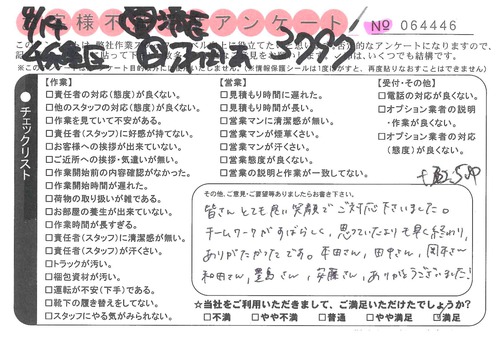 お客様不満足アンケート No 064446
8/19
【作業】
□責任者の対応(態度)が良くない。
□他のスタッフの対応(態度)が良くない。
□作業を見ていて不安がある。
□責任者(スタッフ)に好感が持てない。
□お客様への挨拶が出来ていない。
□ご近所への挨拶・気遣いが無い。
□作業開始前の内容確認がなかった。
□作業開始時間が遅れた。
□荷物の取り扱いが雑である。
□お部屋の養生が出来ていない。
□作業時間が長すぎる。
□責任者(スタッフ)に清潔感が無い。
□責任者(スタッフ)が汗くさい。
□トラックが汚い。
□梱包資材が汚い。
□運転が不安(下手)である。
□靴下の履き替えをしてない。
□スタッフにやる気がみられない。
チェックリスト
【営業】
□見積もり時間に遅れた。
□見積もり時間が長い。
□営業マンに清潔感が無い。
□営業マンが煙草くさい。
□営業マンが汗くさい。
□営業態度が良くない。
□営業の説明と作業が一致してない。
【受付・その他】
□電話の対応が良くない。
□オプション業者の説明
・作業が良くない。
□オプション業者の対応
(態度)が良くない。
その他、ご意見・ご要望等ありましたらお書き下さい。
皆さんとても良い笑顔でご対応下さいました。
チームワークがすばらしく、思っていたよりも早く終わり、
ありがたかったです。本田さん、田中さん、岡本さん
和田さん、豊島さん、安藤さん、ありがとうございました!
☆当社をご利用いただきまして、ご満足いただけたでしょうか?
□不満 □やや不満 □普通 □やや満足 ☑満足